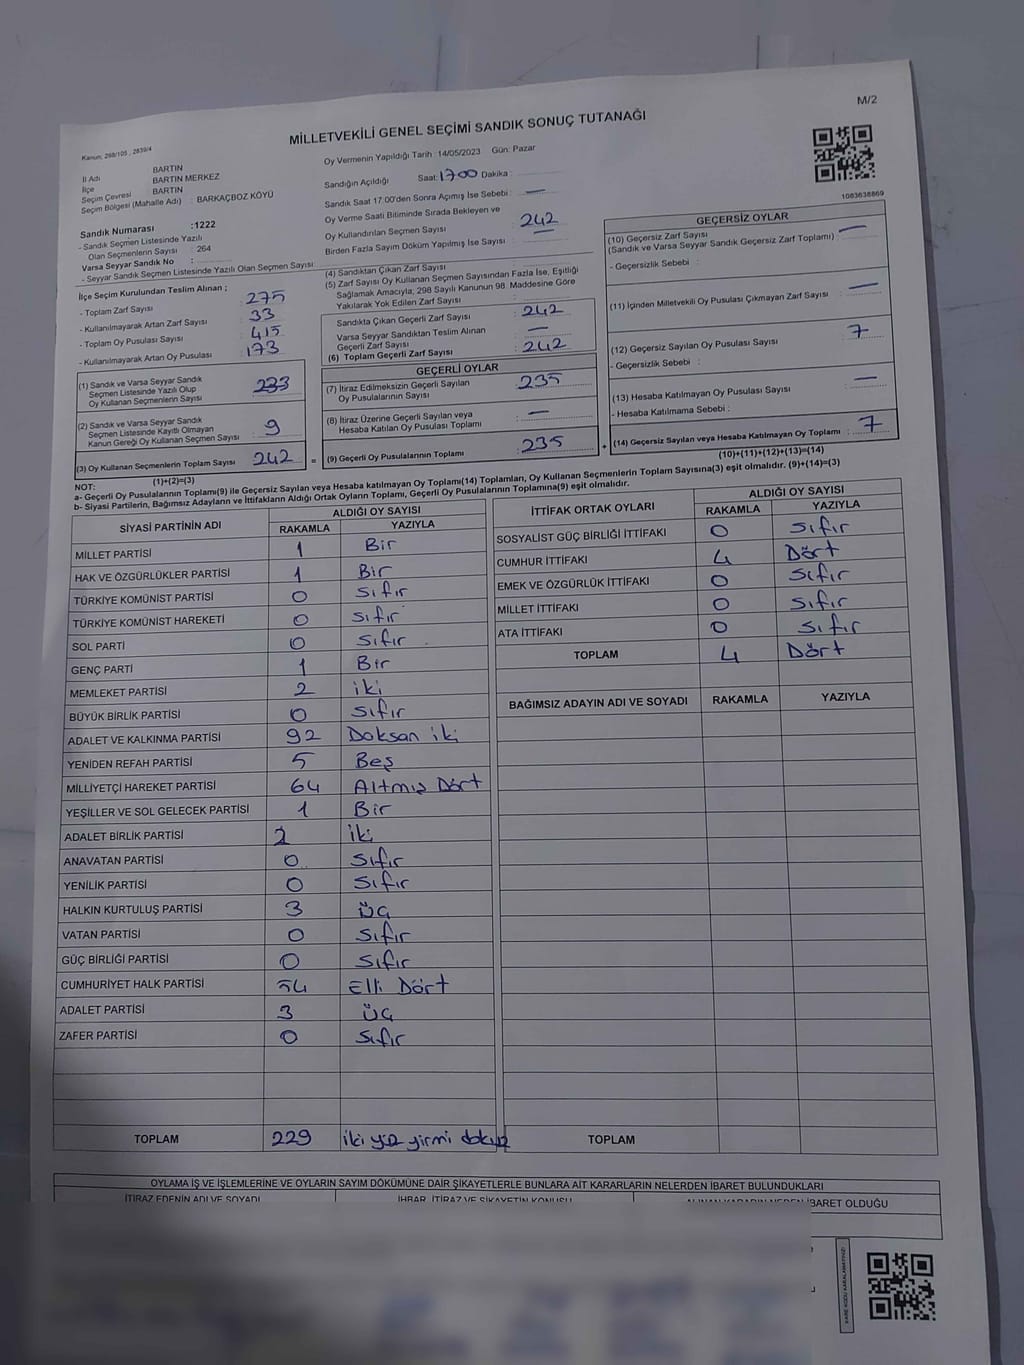 M/2
MİLLETVEKİLİ GENEL SEÇİMİ SANDIK SONUÇ TUTANAĞI
Kanun, 298/105 , 2839/4
İl Adı BARTIN
İlçe BARTIN MERKEZ
Seçim Çevresi BARTIN
Seçim Bölgesi (Mahalle Adı) : BARKAÇBOZ KÖYÜ
Sandık Numarası :1222
- Sandık Seçmen Listesinde Yazılı
Olan Seçmenlerin Sayısı : 264
Varsa Seyyar Sandık No :
- Seyyar Sandık Seçmen Listesinde Yazılı Olan Seçmen Sayısı
Oy Vermenin Yapıldığı Tarih : 14/05/2023 Gün: Pazar
Sandığın Açıldığı Saat: 1700 Dakika :
Sandık Saat 17.00'den Sonra Açımış İse Sebebi : —
Oy Verme Saati Bitiminde Sırada Bekleyen ve
Oy Kullandırılan Seçmen Sayısı : 242
Birden Fazla Sayım Döküm Yapılmış İse Sayısı : —
1083638869
İlçe Seçim Kurulundan Teslim Alınan ;
- Toplam Zarf Sayısı : 275
- Kullanılmayarak Artan Zarf Sayısı : 33
- Toplam Oy Pusulası Sayısı : 415
- Kullanılmayarak Artan Oy Pusulası : 173
(1) Sandık ve Varsa Seyyar Sandık
Seçmen Listesinde Yazılı Olup
Oy Kullanan Seçmenlerin Sayısı : 233
(2) Sandık ve Varsa Seyyar Sandık
Seçmen Listesinde Kayıtlı Olmayan
Kanun Gereği Oy Kullanan Seçmen Sayısı : 9
(3) Oy Kullanan Seçmenlerin Toplam Sayısı : 242
(1)+(2)=(3)
(4) Sandıktan Çıkan Zarf Sayısı
(5) Zarf Sayısı Oy Kullanan Seçmen Sayısından Fazla İse, Eşitliği
Sağlamak Amacıyla; 298 Sayılı Kanunun 98. Maddesine Göre
Yakılarak Yok Edilen Zarf Sayısı
Sandıkta Çıkan Geçerli Zarf Sayısı : 242
Varsa Seyyar Sandıktan Teslim Alınan
Geçerli Zarf Sayısı : —
(6) Toplam Geçerli Zarf Sayısı : 242
GEÇERLİ OYLAR
(7) İtiraz Edilmeksizin Geçerli Sayılan
Oy Pusulalarının Sayısı : 235
(8) İtiraz Üzerine Geçerli Sayılan veya
Hesaba Katılan Oy Pusulası Toplamı : —
(9) Geçerli Oy Pusulalarının Toplamı : 235
GEÇERSİZ OYLAR
(10) Geçersiz Zarf Sayısı
(Sandık ve Varsa Seyyar Sandık Geçersiz Zarf Toplamı) : —
- Geçersizlik Sebebi :
(11) İçinden Milletvekili Oy Pusulası Çıkmayan Zarf Sayısı : —
(12) Geçersiz Sayılan Oy Pusulası Sayısı : 7
- Geçersizlik Sebebi :
(13) Hesaba Katılmayan Oy Pusulası Sayısı : —
- Hesaba Katılmama Sebebi :
(14) Geçersiz Sayılan veya Hesaba Katılmayan Oy Toplamı : 7
(10)+(11)+(12)+(13)=(14)
NOT:
a- Geçerli Oy Pusulalarının Toplamı(9) ile Geçersiz Sayılan veya Hesaba katılmayan Oy Toplamı(14) Toplamları, Oy Kullanan Seçmenlerin Toplam Sayısına(3) eşit olmalıdır. (9)+(14)=(3)
b- Siyasi Partilerin, Bağımsız Adayların ve İttifakların Aldığı Ortak Oyların Toplamı, Geçerli Oy Pusulalarının Toplamına(9) eşit olmalıdır.
SİYASİ PARTİNİN ADI ALDIĞI OY SAYISI
RAKAMLA YAZIYLA
MİLLET PARTİSİ 1 Bir
HAK VE ÖZGÜRLÜKLER PARTİSİ 1 Bir
TÜRKİYE KOMÜNİST PARTİSİ 0 sıfır
TÜRKİYE KOMÜNİST HAREKETİ 0 sıfır
SOL PARTİ 0 sıfır
GENÇ PARTİ 1 Bir
MEMLEKET PARTİSİ 2 iki
BÜYÜK BİRLİK PARTİSİ 0 sıfır
ADALET VE KALKINMA PARTİSİ 92 Doksan iki
YENİDEN REFAH PARTİSİ 5 Beş
MİLLİYETÇİ HAREKET PARTİSİ 64 Altmış Dört
YEŞİLLER VE SOL GELECEK PARTİSİ 1 Bir
ADALET BİRLİK PARTİSİ 2 iki
ANAVATAN PARTİSİ 0 sıfır
YENİLİK PARTİSİ 0 sıfır
HALKIN KURTULUŞ PARTİSİ 3 üç
VATAN PARTİSİ 0 sıfır
GÜÇ BİRLİĞİ PARTİSİ 0 sıfır
CUMHURİYET HALK PARTİSİ 54 Elli Dört
ADALET PARTİSİ 3 üç
ZAFER PARTİSİ 0 sıfır
TOPLAM 229 iki yüz yirmi dokuz
İTTİFAK ORTAK OYLARI ALDIĞI OY SAYISI
RAKAMLA YAZIYLA
SOSYALİST GÜÇ BİRLİĞİ İTTİFAKI 0 sıfır
CUMHUR İTTİFAKI 4 Dört
EMEK VE ÖZGÜRLÜK İTTİFAKI 0 sıfır
MİLLET İTTİFAKI 0 sıfır
ATA İTTİFAKI 0 sıfır
TOPLAM 4 Dört
BAĞIMSIZ ADAYIN ADI VE SOYADI RAKAMLA YAZIYLA
TOPLAM
OYLAMA İŞ VE İŞLEMLERİNE VE OYLARIN SAYIM DÖKÜMÜNE DAİR ŞİKAYETLERLE BUNLARA AİT KARARLARIN NELERDEN İBARET BULUNDUKLARI
İTİRAZ EDENİN ADI VE SOYADI İHBAR, İTİRAZ VE ŞİKAYETİN KONUSU ALINAN KARARIN NEDEN İBARET OLDUĞU
KARE KODU KARALAMAYINIZ!